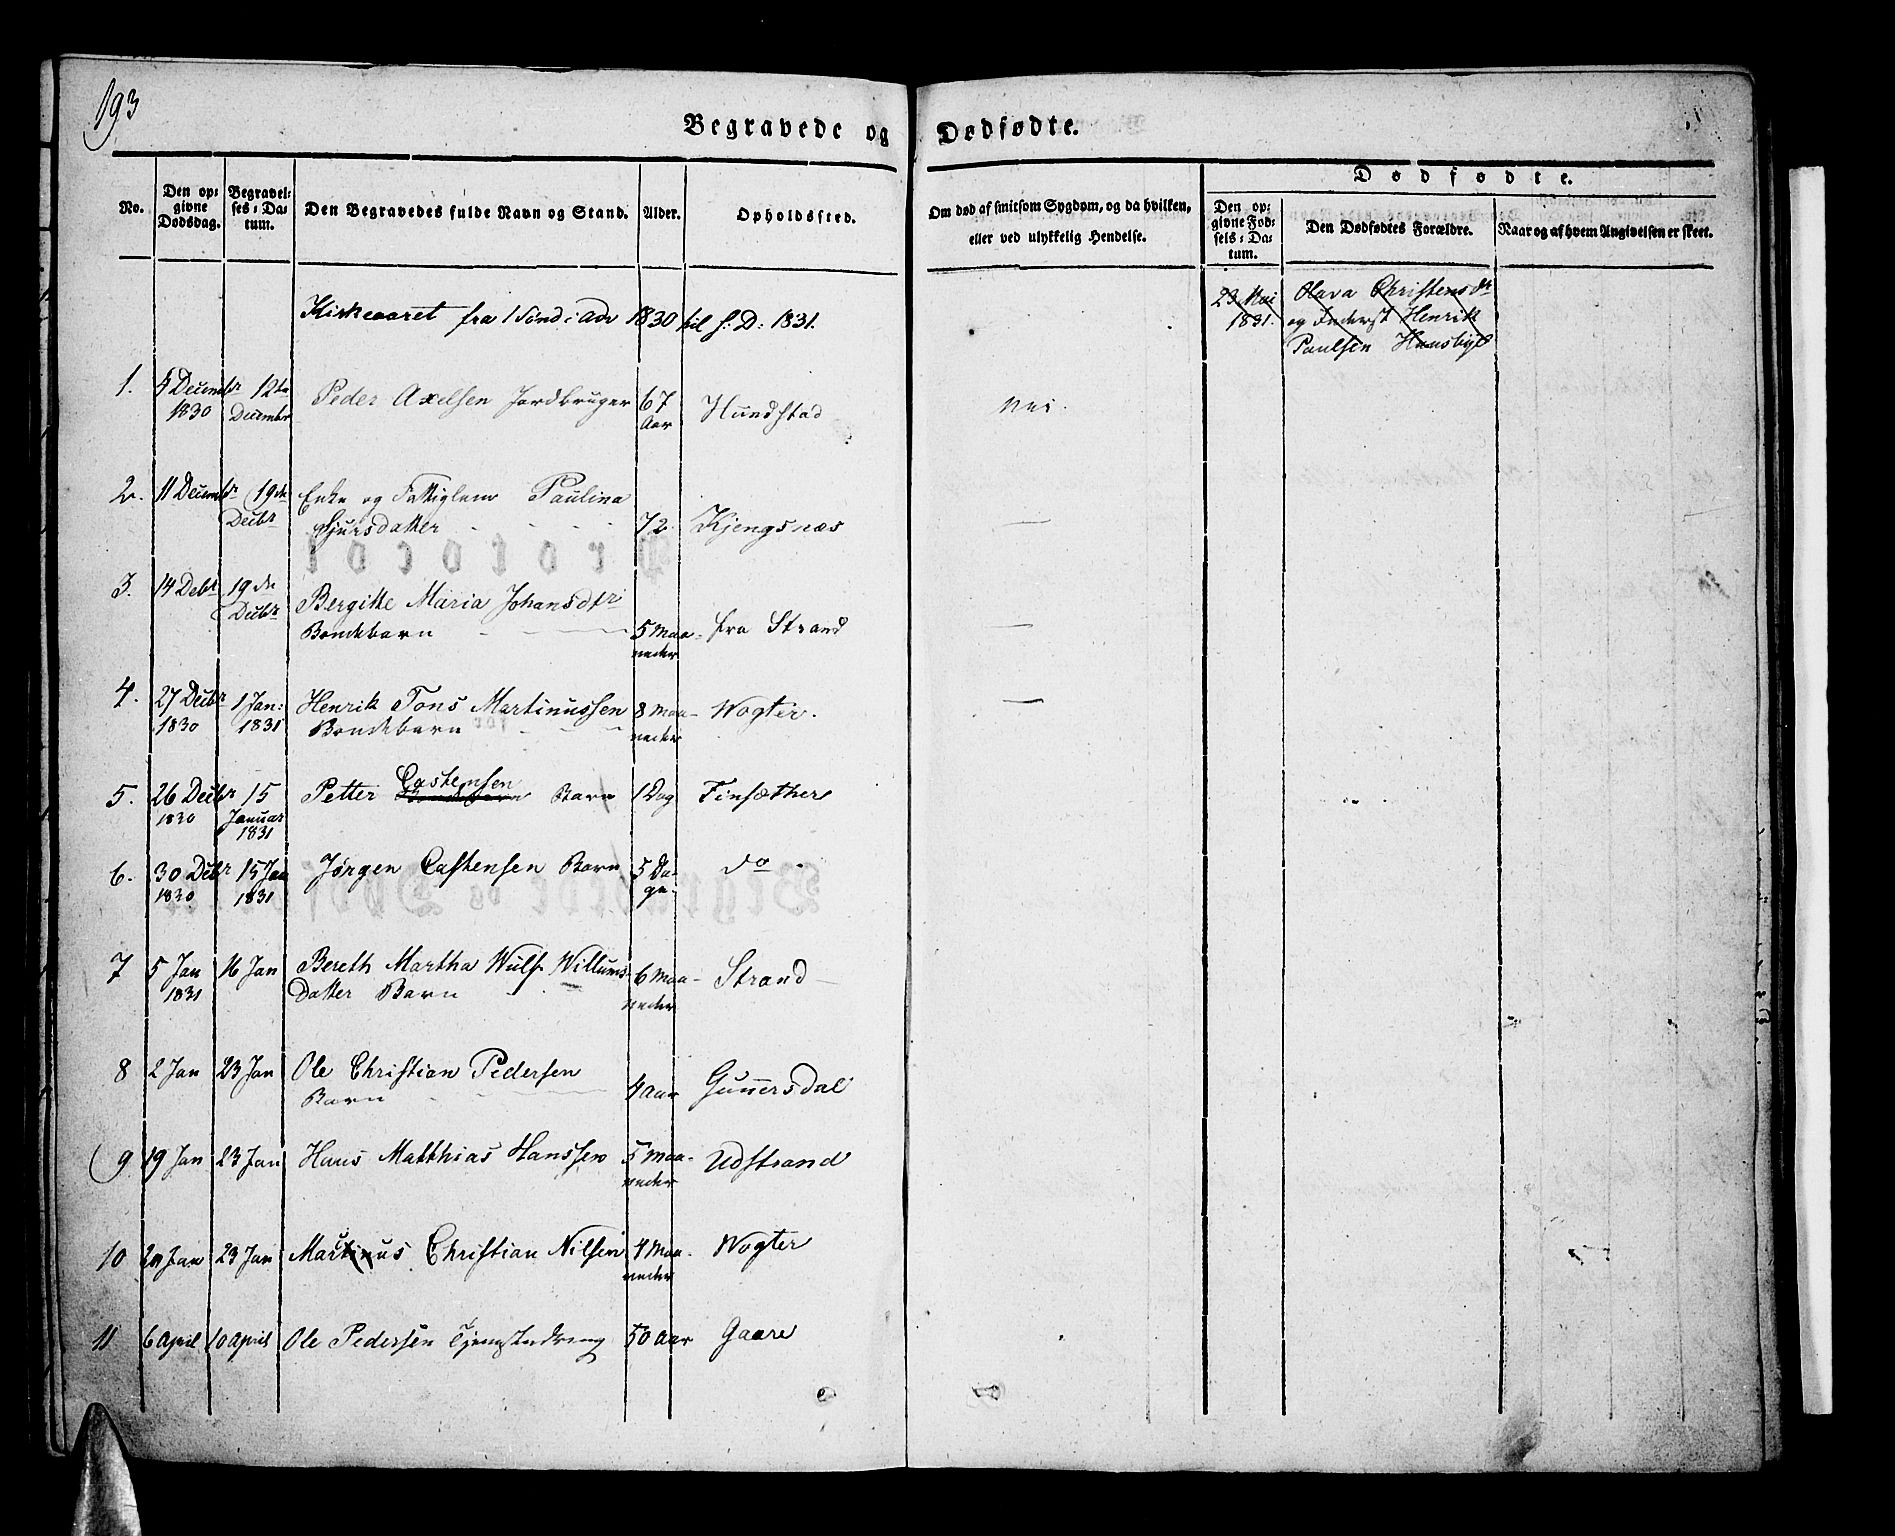 193
Begravede og Dødfødte.
No.
Den op=
givne
Dødsdag.
Begravel=
ses=Da=
tum.
Den Begravedes fulde Navn og Stand.
Alder.
Opholdssted.
Om død af smitsom Sygdom, og da hvilken,
eller ved ulykkelig Hendelse.
Dødfødte.
Den op=
givne Fød=
sels=Da=
tum.
Den Dødfødtes Forældre.
Naar og af hvem Angivelsen er skeet.
Kirkeaaret fra 1 Sønd: Adv 1830 til s: D: 1831.
23 Mai
1831.
Olava Christensdr
og Inderst Henrik
Paulsen
1. 5 Decembr 12te Peder Axelsen Jordbruger 67 Hundstad Nei.
1830 Decembr Aar
2. 11 Decembr 19de Enke og Fattiglem Paulina
Decbr Sjursdatter 72 Kjengsnæs —
3. 14 Debr 19de Bergitte Maria Johansdtr
Decbr Bondebarn 5 Maa- fra Strand —
neder
4. 27 Decbr 1 Jan: Henrik Tons Martinussen 8 Maa- Wogter. —
1830 1831 Bondebarn neder
Castensen
5. 26 Decbr 15 Petter Bondebarn Barn 1 Dag Finsæther
1830 Januar
1831
6. 30 Debr 15 Jan Jørgen Castensen Barn 5 Da- do
1830 1831 ge-
7 5 Jan 16 Jan Bereth Martha Wulf Willums- 6 Maa- Strand
1831 Datter Barn neder
8 2 Jan 23 Jan Ole Christian Pedersen
Barn 4 Aar Gunnersdal
9 19 Jan 23 Jan Hans Matthias Hanssen 5 Maa- Udstrand
neder
10 20 Jan 23 Jan Martinus Christian Nilsen 4 Maa- Wogter
neder
11 6 April 10 April Ole Pedersen Tjenestedreng 50 Aar Gaare